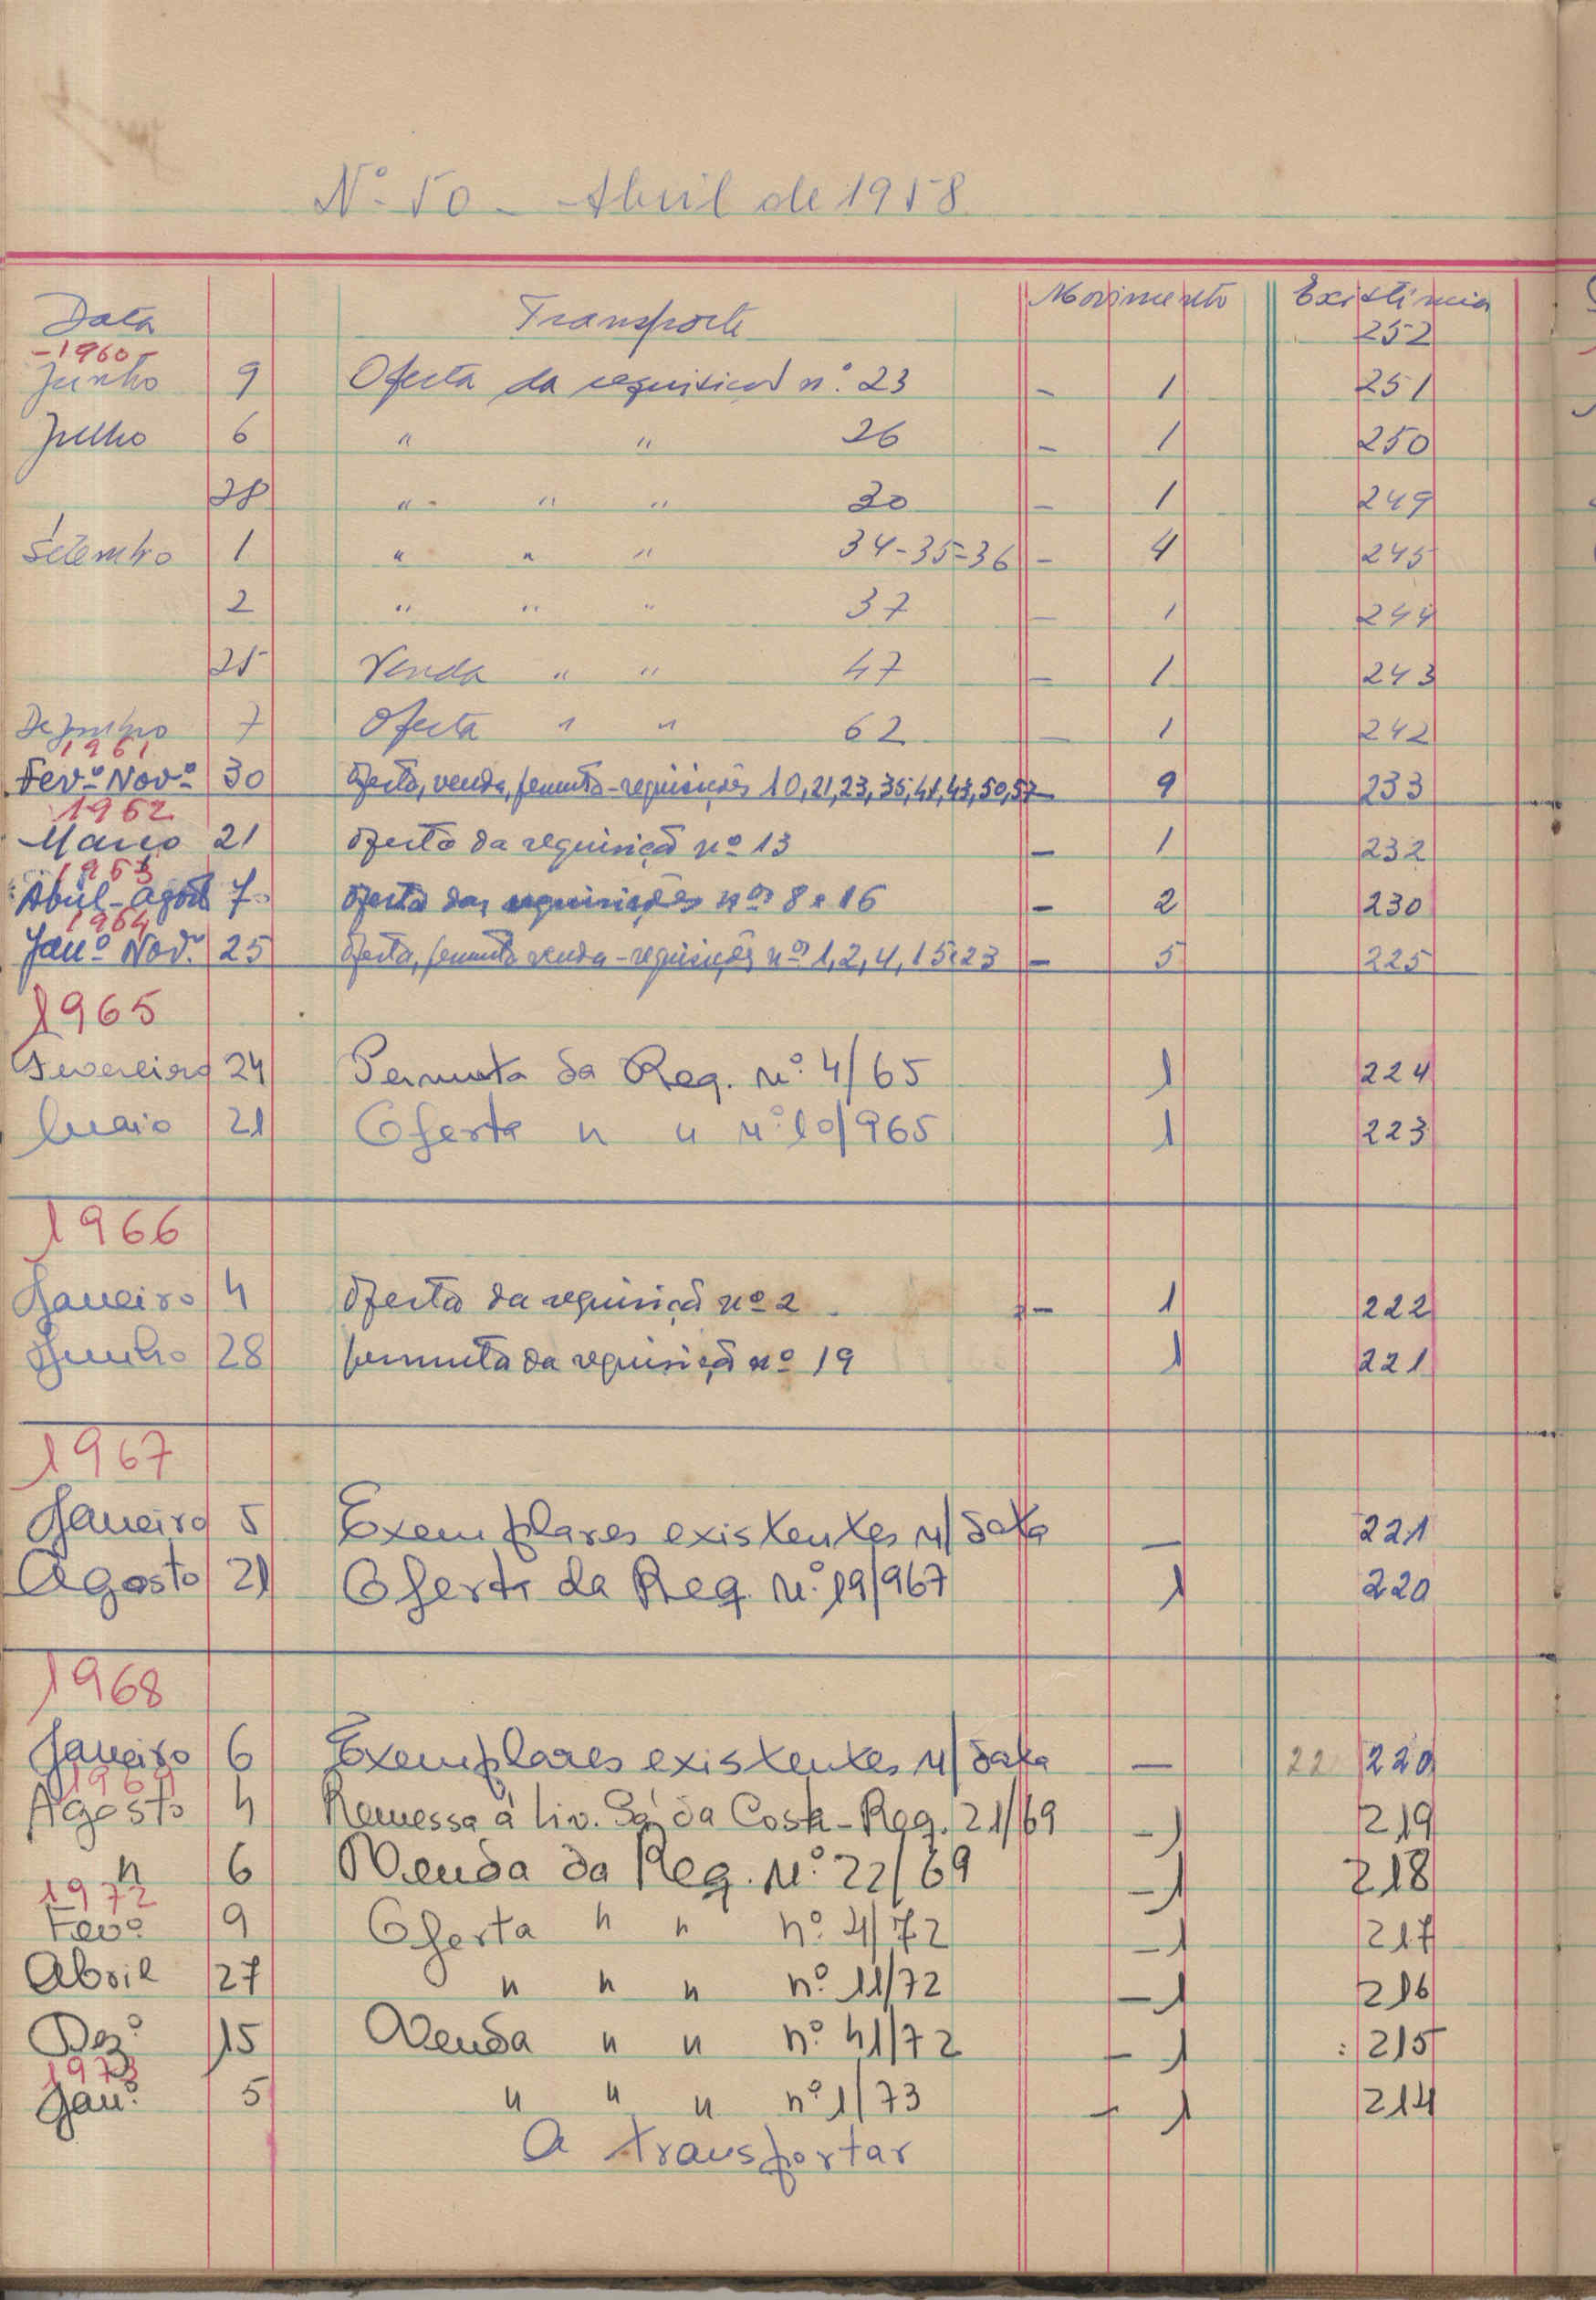 Nº 50 - Abril de 1958
Data Transporte Movimento Existência
252
-1960-
Junho 9 Oferta da requisição nº 23 - 1 251
Julho 6 " " 26 - 1 250
28 " " " 30 - 1 249
Setembro 1 " " " 34-35-36 - 4 245
2 " " " 37 - 1 244
25 Venda " " 47 - 1 243
Dezembro 7 Oferta " " 62 - 1 242
1961
Fevº-Novº 30 Oferta, venda, permuta-requisições 10,21,23,35,41,43,50,57 - 9 233
1962
Março 21 Oferta da requisição nº 13 - 1 232
1963
Abril-Agost 7 Oferta das requisições nºs 8 e 16 - 2 230
1964
Janº Novº 25 Oferta, permuta venda-requisições nºs 1,2,4,15e23 - 5 225
1965
Fevereiro 24 Permuta da Req. nº 4/65 1 224
Maio 21 Oferta " " nº 10/965 1 223
1966
Janeiro 4 Oferta da requisição nº 2 - 1 222
Junho 28 permuta da requisição nº 19 1 221
1967
Janeiro 5 Exemplares existentes n/data — 221
Agosto 21 Oferta da Req. nº 19/967 1 220
1968
Janeiro 6 Exemplares existentes n/data — 22 220
1969
Agosto 4 Remessa à Liv. Sá da Costa-Req. 21/69 -1 219
" 6 Venda da Req. Nº 22/69 -1 218
1972
Fevº 9 Oferta " " nº 4/72 -1 217
Abril 27 " " " nº 11/72 -1 216
Dezº 15 Venda " " nº 41/72 -1 215
1973
Janº 5 " " " nº 1/73 - 1 214
A transportar